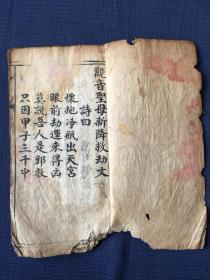 觀音聖母新降救劫文
詩曰
懷抱淨瓶出天宮
眼前劫運來得凶
莫說吾人是邪教
只因甲子三千中